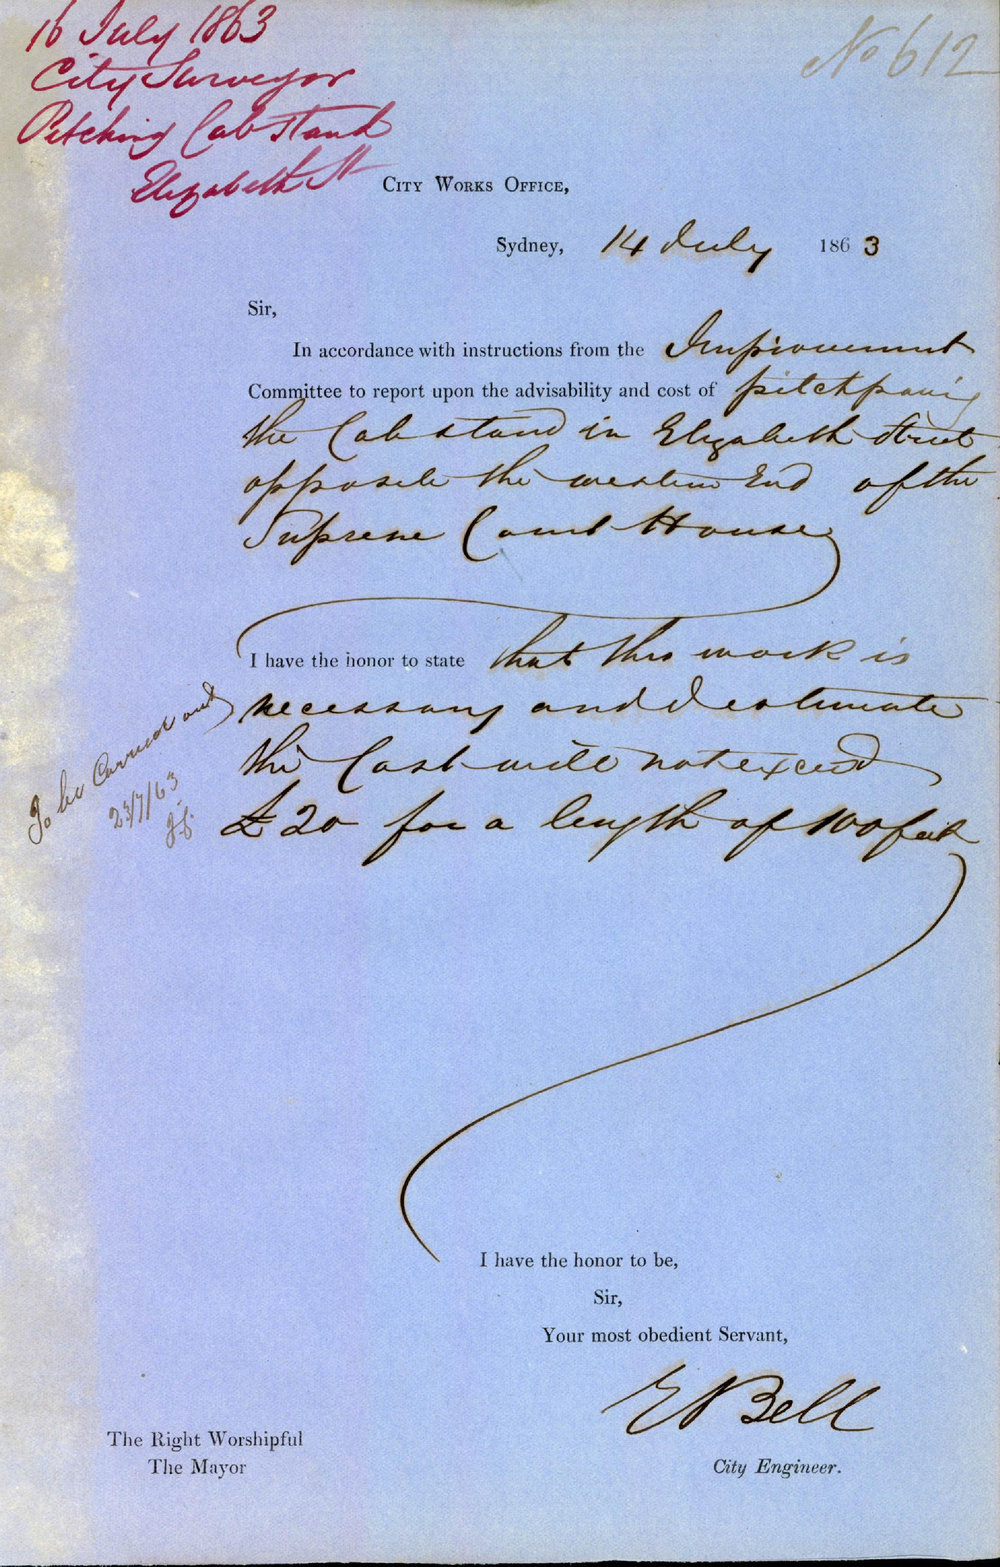 16 July 1863
City Surveyor
Pitching Cab Stand
Elizabeth St
No 612
City Works Office,
Sydney, 14 July 1863
Sir,
In accordance with instructions from the Improvement
Committee to report upon the advisability and cost of pitchpaving
the Cab stand in Elizabeth Street
opposite the western End of the
Supreme Court House
I have the honor to state that this work is
necessary and I estimate
the Cost will not exceed
£20 for a length of 100 feet
To be Carried out
23/7/63
I have the honor to be,
Sir,
Your most obedient Servant,
E Bell
City Engineer.
The Right Worshipful
The Mayor